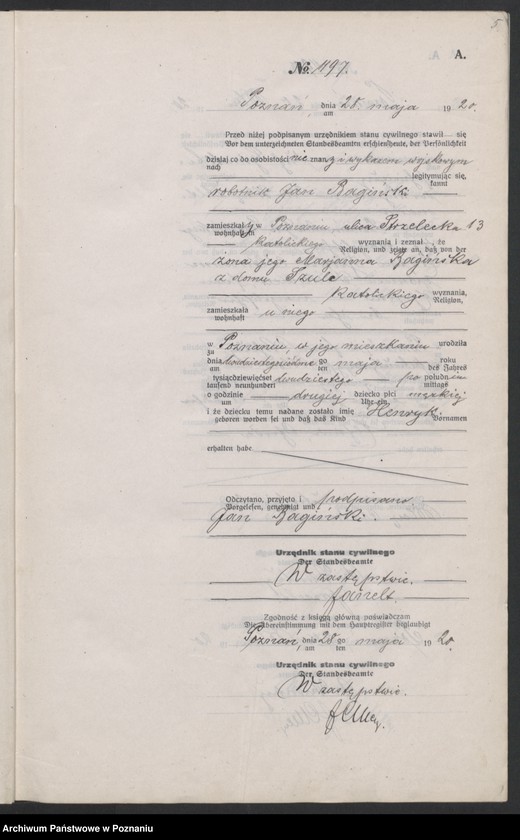 5
A.
No. 1197.
Poznań dnia 28. maja 1920.
am
Przed niżej podpisanym urzędnikiem stanu cywilnego stawił się
Vor dem unterzeichneten Standesbeamten erschien heute, der Persönlichkeit
dzisiaj co do osobistości nie znany i wykazem wojskowym
nach
legitymując się,
kannt
robotnik Jan Bagiński
zamieszkały w Poznaniu ulica Strzelecka 13
wohnhaft in
katolickiego wyznania i zeznał, że
Religion, und zeigte an, daß von der
żona jego Maryanna Bagińska
z domu Szulc
katolickiego wyznania,
Religion,
zamieszkała u niego
wohnhaft
w Poznaniu, w jego mieszkaniu urodziła
zu
dnia dwudziestego go maja roku
am ten des Jahres
tysiącdziewięćset dwudziestego po południu
tausend neunhundert mittags
o godzinie drugiej dziecko płci męskiej
um Uhr ein
i że dziecku temu nadane zostało imię Henryk
geboren worden sei und daß das Kind Vornamen
erhalten habe
Odczytano, przyjęto i podpisano
Vorgelesen, genehmigt und
Jan Bagiński.
Urzędnik stanu cywilnego
Der Standesbeamte
W zastępstwie.
Zgodność z księgą główną poświadczam
Die Übereinstimmung mit dem Hauptregister beglaubigt
Poznań, dnia 28 go maja 1920.
am ten
Urzędnik stanu cywilnego
Der Standesbeamte
W zastępstwie.
Archiwum Państwowe w Poznaniu